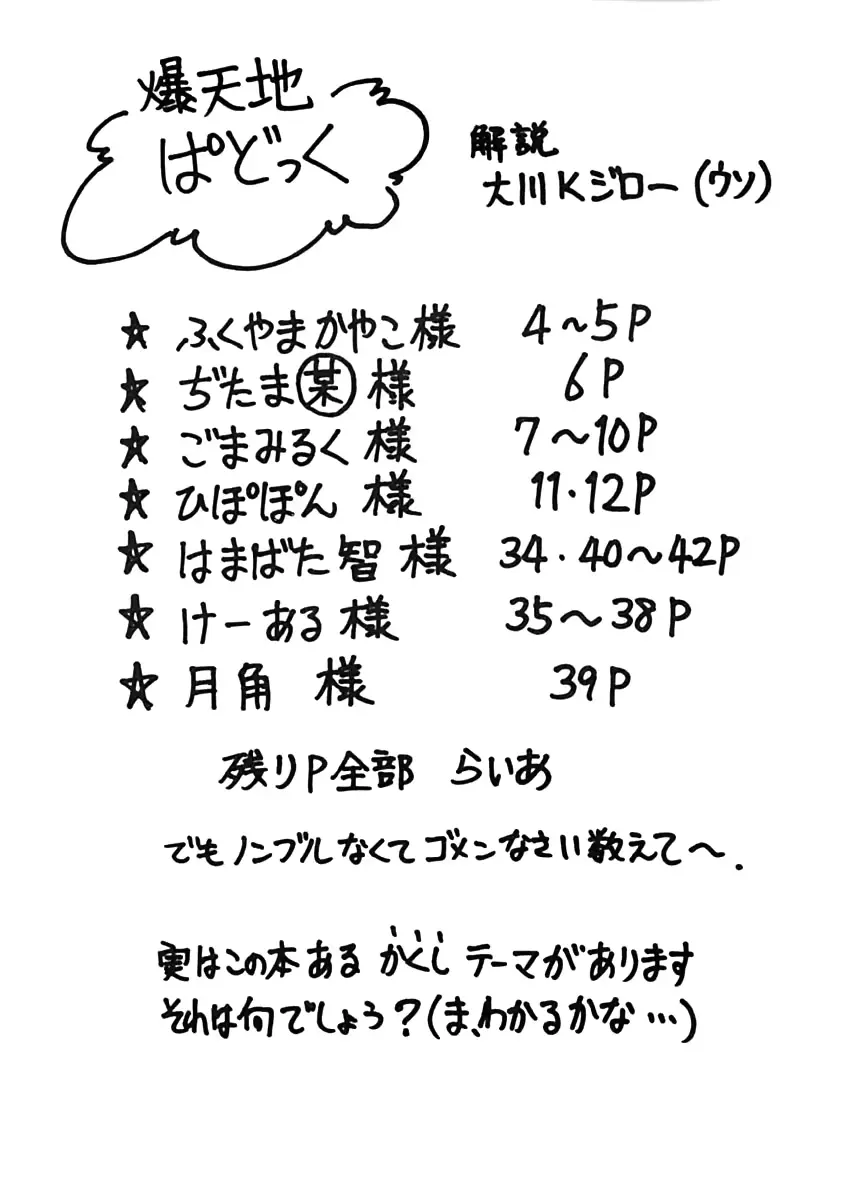 爆天地
ぱどっく
解説
大川Kジロー(ウソ)
★ ふくやまかやこ様 4～5P
★ ぢたま某様 6P
★ ごまみるく様 7～10P
★ ひぽぽん様 11・12P
★ はまばた智様 34・40～42P
★ けーある様 35～38P
★ 月角 様 39P
残りP全部 らいあ
でもノンブルなくてゴメンなさい数えて～.
実はこの本ある かくし テーマがあります
それは何でしょう?(ま、わかるかな…)